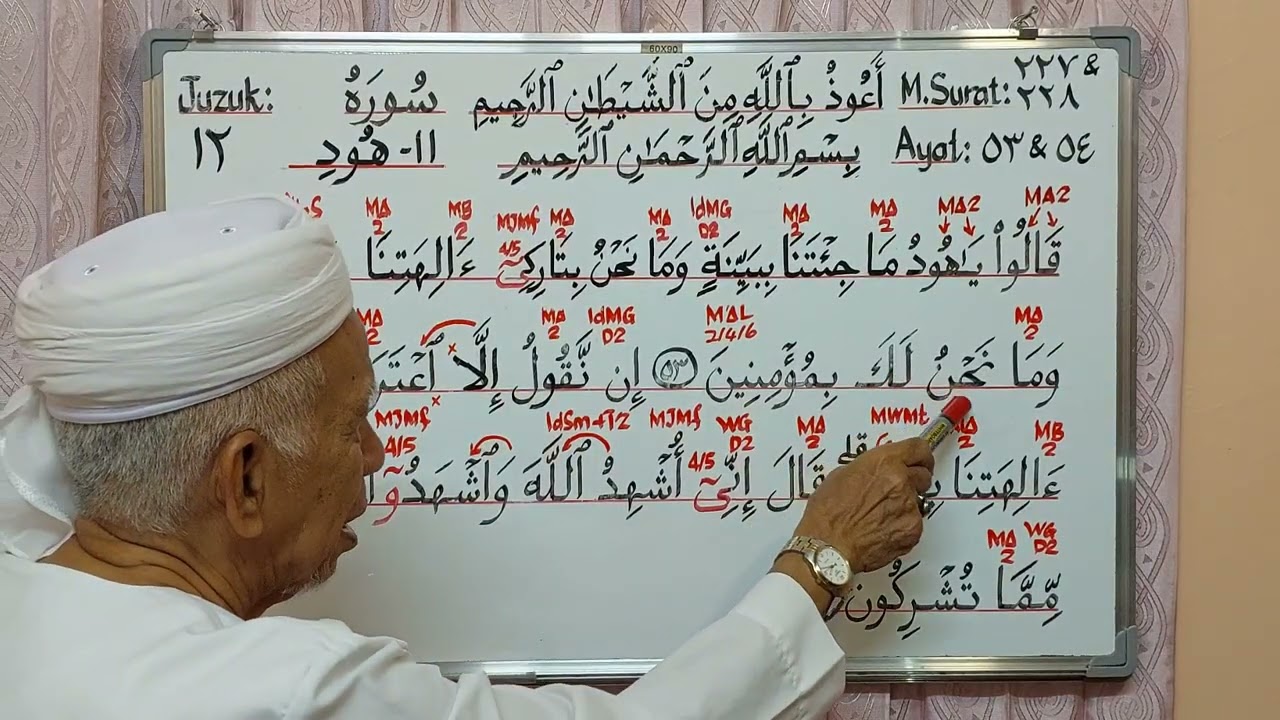 60X90
Juzuk: سُورَةُ أَعُوذُ بِٱللَّهِ مِنَ ٱلشَّيْطَانِ ٱلرَّجِيمِ M.Surat: ٢٢٧ & ٢٢٨
١٢ ١١- هُودٍ بِسْمِ ٱللَّهِ ٱلرَّحْمَـٰنِ ٱلرَّحِيمِ Ayat: ٥٣ & ٥٤
MA2 MA2 MA 2 MA 2 IdMG D2 MA 2 MA 2 MJMf 4/5 MB 2 MA 2
قَالُوا۟ يَـٰهُودُ مَا جِئْتَنَا بِبَيِّنَةٍ وَمَا نَحْنُ بِتَارِكِىٓ ءَالِهَتِنَا
MA 2 MAL 2/4/6 IdMG D2 MA 2 MA 2
وَمَا نَحْنُ لَكَ بِمُؤْمِنِينَ ٥٣ إِن نَّقُولُ إِلَّا
MB 2 MWMt MA 2 WG D2 MJMf 4/5 IdSm+T2 MJMf 4/5
ءَالِهَتِنَا قَالَ إِنِّىٓ أُشْهِدُ ٱللَّهَ
WG D2 MA 2
مِّمَّا تُشْرِكُونَ